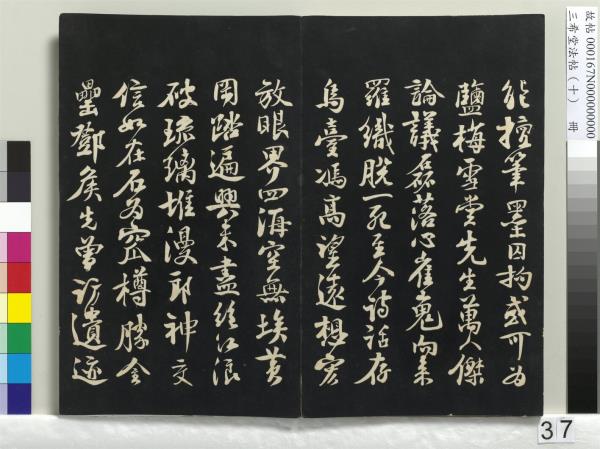 能擅筆墨囚拘或可為
鹽梅雪堂先生萬人傑
論議磊落心崔嵬向來
羅織脫一死至今詩話存
烏臺馮高望遠想宏
放眼界四海空無埃黃
岡踏遍興未盡絕江浪
破琉璃堆漫郎神交
信如在石為窊樽勝金
罍鄧侯先曾訪遺迹
故帖 000167N000000000
三希堂法帖（十） 冊
37